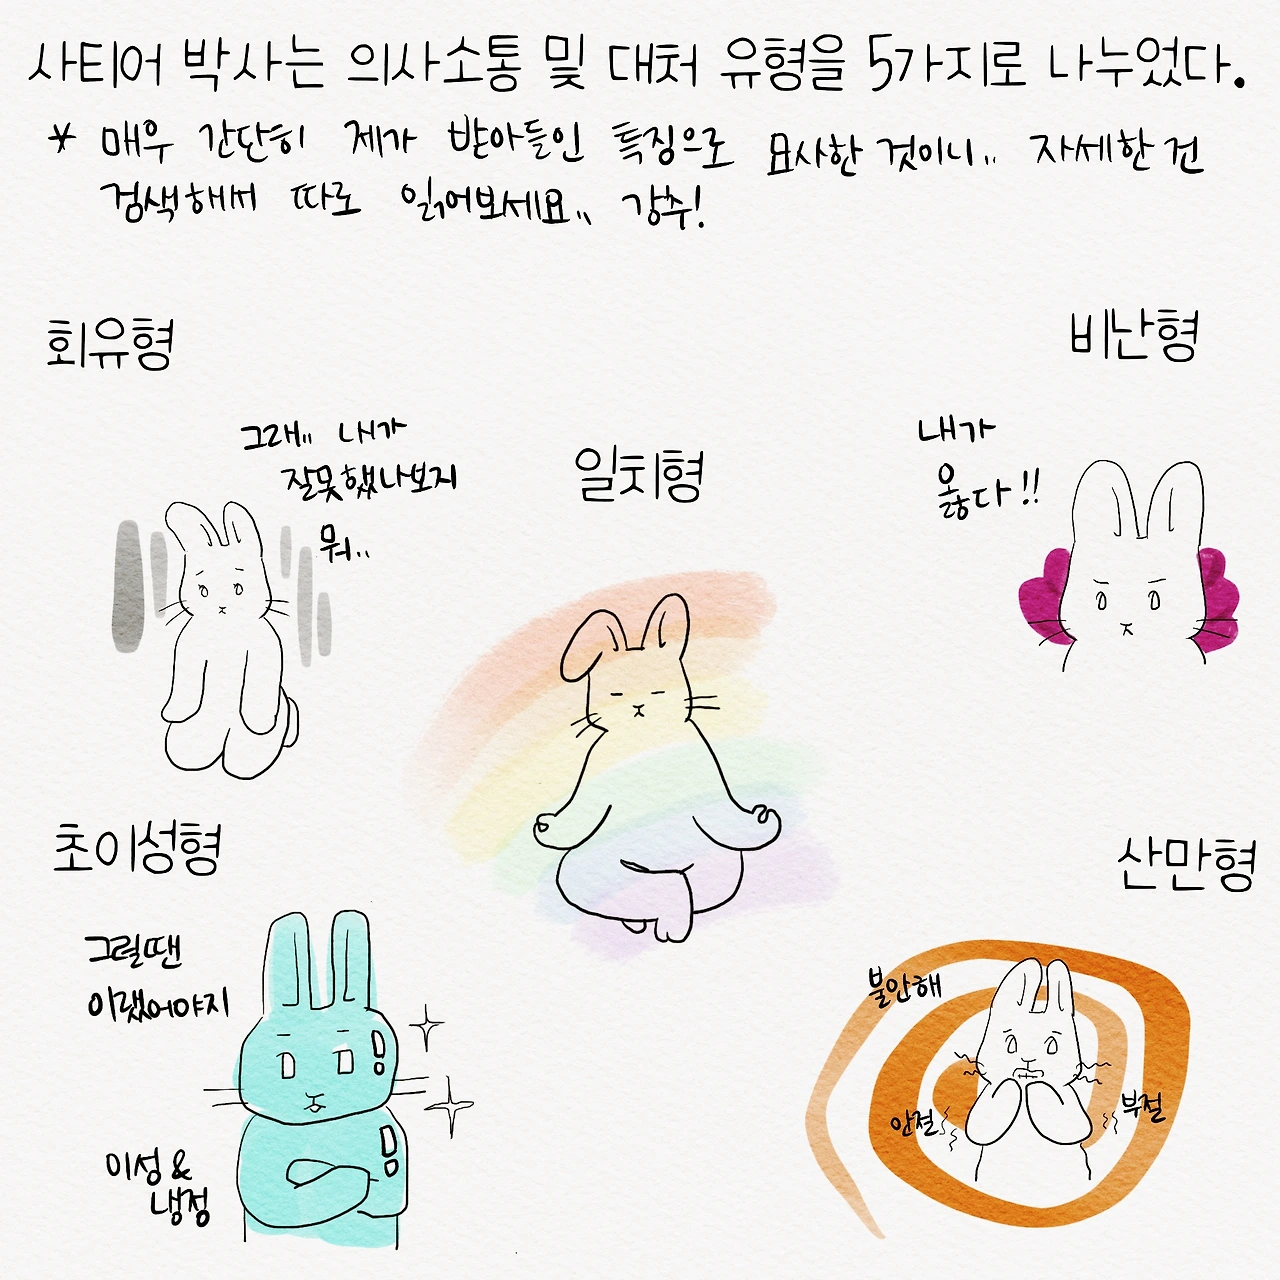 사티어 박사는 의사소통 및 대처 유형을 5가지로 나누었다.
* 매우 간단히 제가 받아들인 특징으로 묘사한 것이니.. 자세한 건
검색해서 따로 읽어보세요.. 강추!
회유형
그래.. 내가
잘못했나보지
뭐..
비난형
내가
옳다!!
일치형
초이성형
그럴땐
이랬어야지
이성&
냉정
산만형
불안해
안절
부절